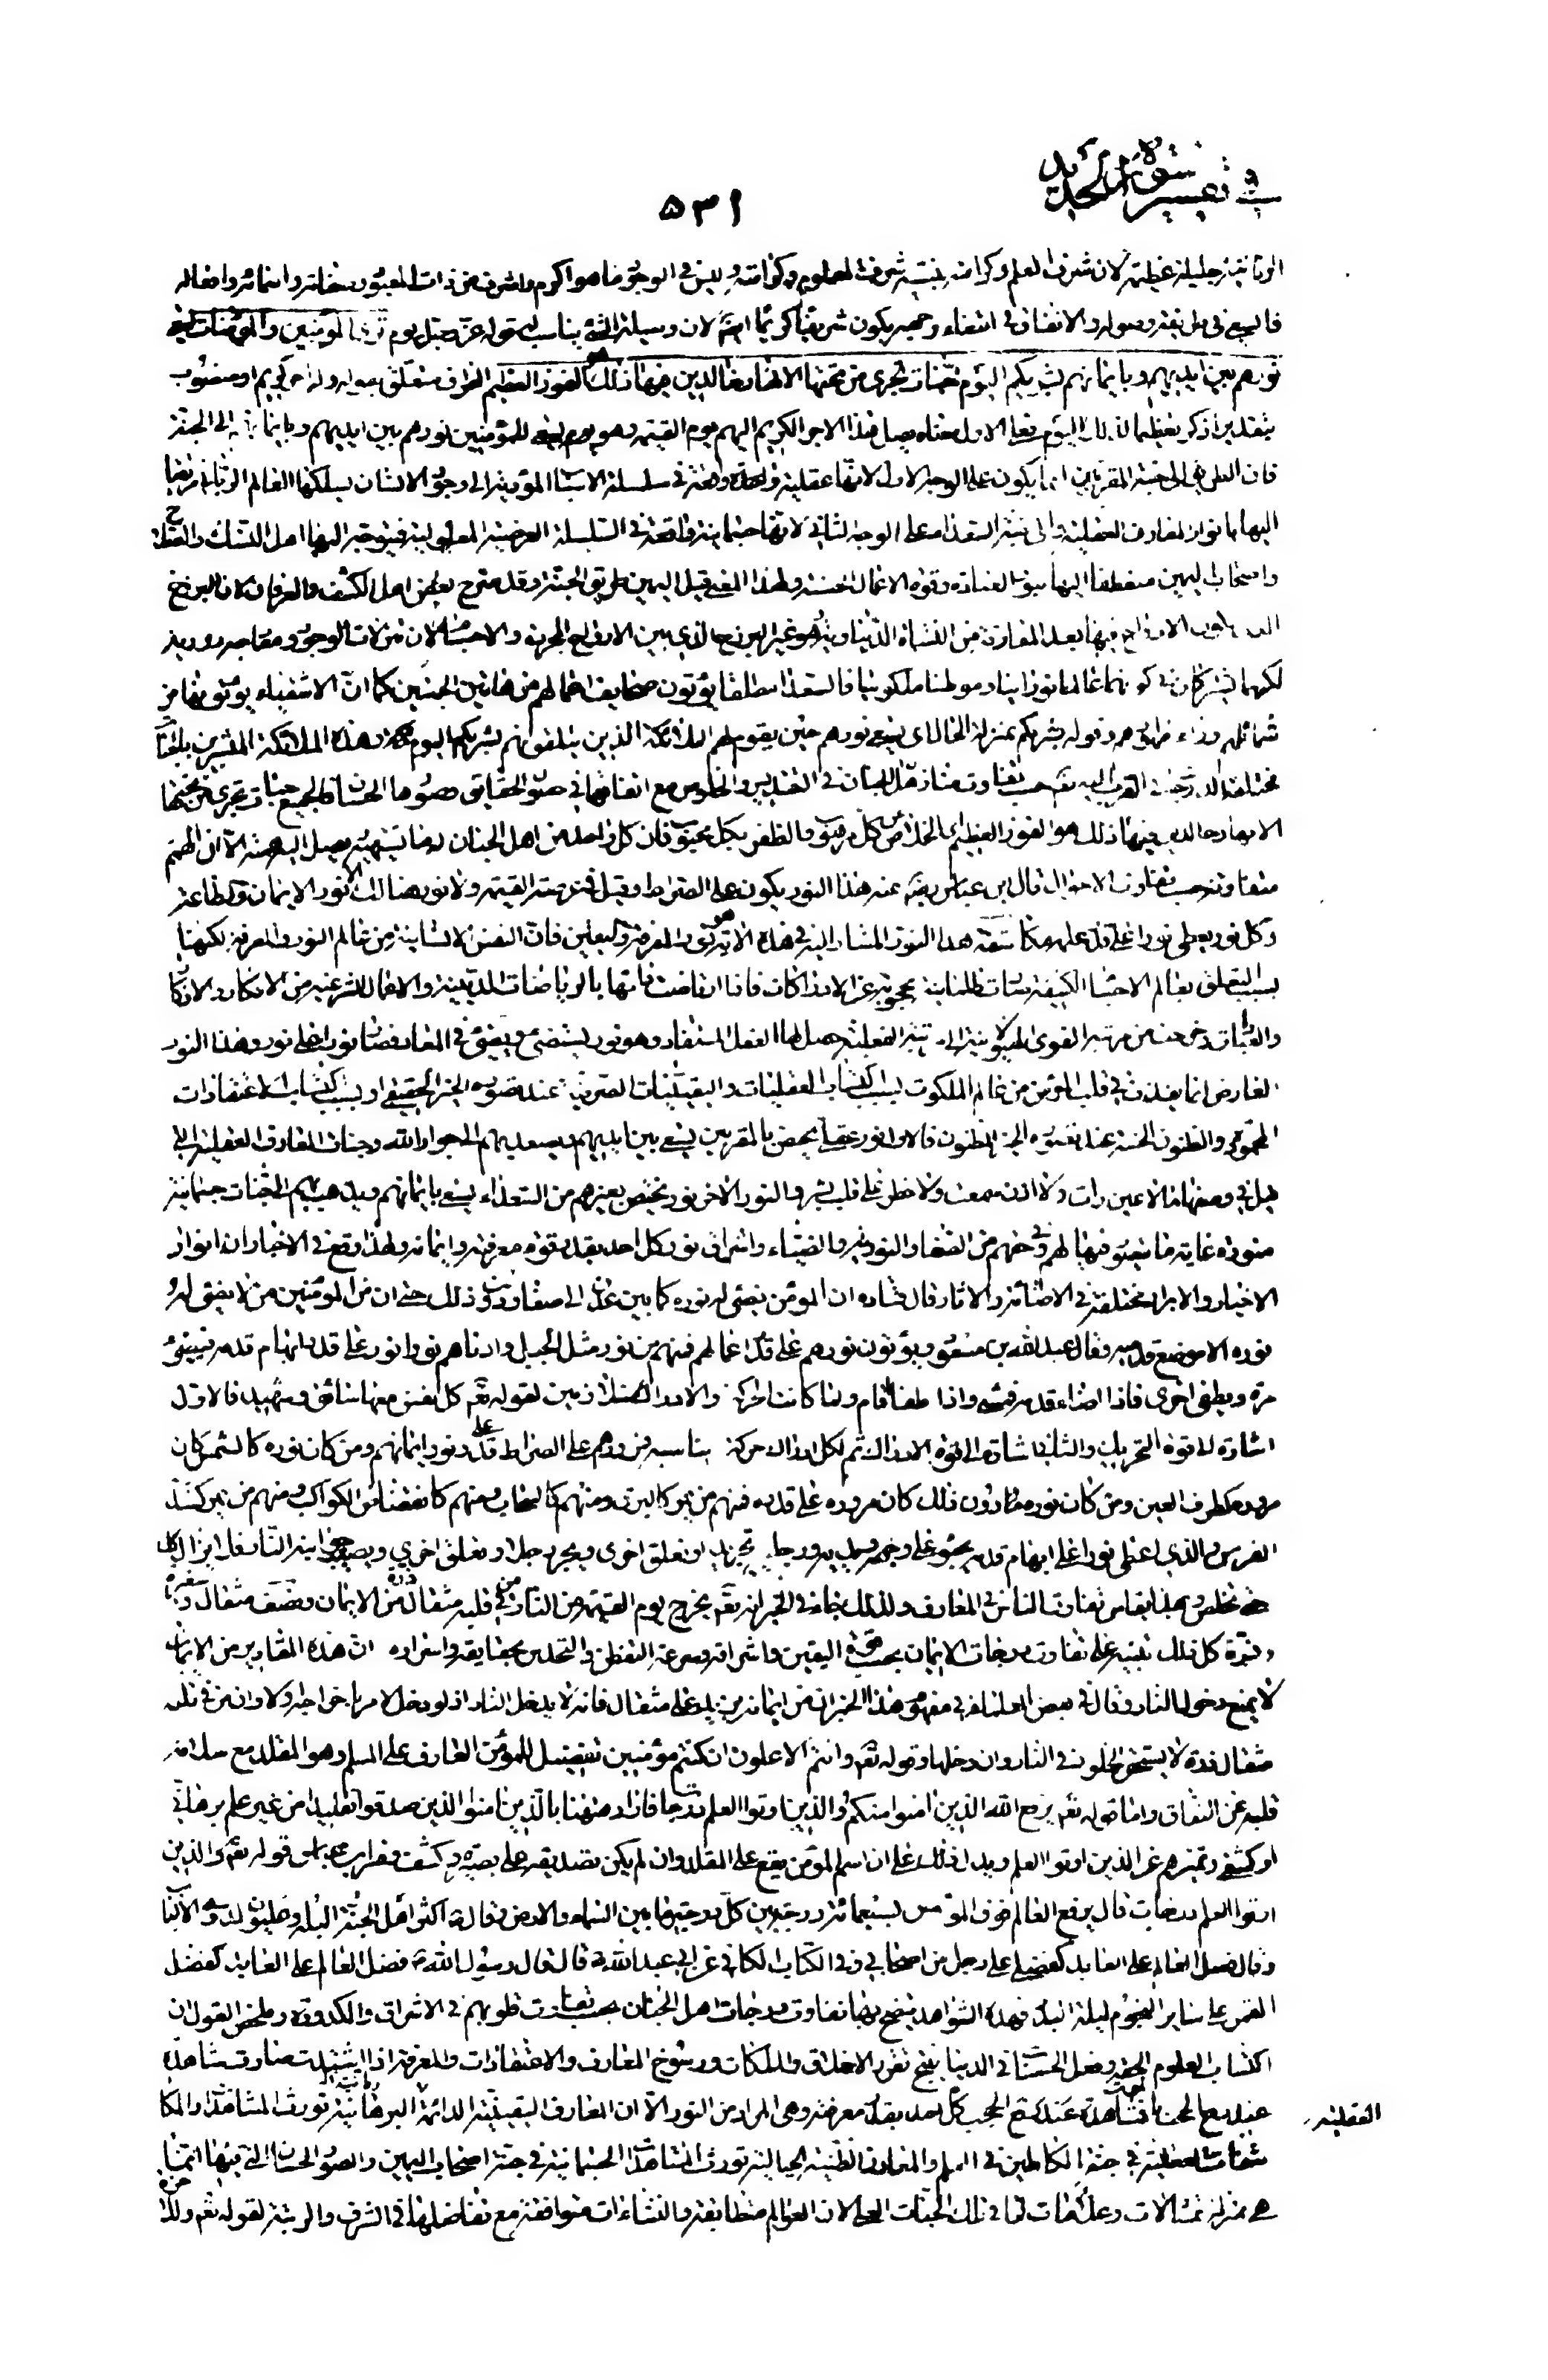 في تفسير سورة الحديد
٥٣١
الربانية جليلة عظيمة لان شرف العلم وكرامته بنسبة شرف المعلوم وكرامته وليس في الوجود ما هو اكرم واشرف من ذات المعبود وصفاته واسمائه وافعاله
فالسعي في طريقه وصوله والانفاق في ابتغاء وجهه يكون شريفا كريما ايضا لان وسيلة الشئ يناسبه قوله عز وجل يوم ترى المؤمنين والمؤمنات يسعى
نورهم بين ايديهم وبايمانهم بشريكم اليوم جنات تجرى من تحتها الانهار خالدين فيها ذلك هو الفوز العظيم الظرف متعلق بقوله وله اجر كريم او منصوب
بتقدير اذكر تعظيما لذلك اليوم فعلى الاول معناه يصل هذا الاجر الكريم اليهم يوم القيمة وهو يوم يسعى للمؤمنين نورهم بين ايديهم وبايمانهم الى الجنة
فان الطريق الى جنة المقربين انما يكون على الوجه الاول لانها عقلية واقعة في سلسلة الاسباب المؤدية الى وجود الانسان يسلكها العالم الرباني
اليها بانوار المعارف العقلية والى جنة السعداء على الوجه الثاني لانها جسمانية واقعة في السلسلة العرضية المعلولية فيتوجه اليها اهل النسك والعمل
واصحاب اليمين منعطفا اليها بنور العبادة وقوة الاعمال الحسنة ولهذا المعنى قيل اليمين طريق الجنة وقد صرح بعض اهل الكشف والعرفان بان البرزخ
الذي يكون الارواح فيها بعد المفارقة من النشأة الدنياوية هو غير البرزخ الذي بين الارواح المجردة والاجسام لان تنزلات الوجود ومعارجه دورية
لكنهما يشتركان في كونهما عالما نورانيا وموطنا ملكوتيا فالسعداء مطلقا يؤتون صحايف اعمالهم من هاتين الجهتين كما ان الاشقياء يؤتونها من
شمائلهم ووراء ظهورهم وقوله بشريكم بمنزلة الحال اى يسعى نورهم حين يقوم لهم الملائكة الذين يتلقونهم بشريكم اليوم وهذه الملائكة المبشرين
مختلفة الدرجات في القرب اليه تعالى حسب تفاوت منازل الجنان في التقديس والخلوص مع اتفاقها في صور الحقايق وصورها الحسان والجميع جنات تجرى من تحتها
الانهار خالدين فيها ذلك هو الفوز العظيم اى الخلاص من كل مرهوب والظفر بكل محبوب فان كل واحد من اهل الجنان له ما يشتهيه يصل اليه همته الا ان الهمم
متفاوتة حسب تفاوت الاحوال قال ابن عباس رضى عنه هذا النور يكون على الصراط وقيل في عرصة القيمة ولا نور هنالك الا نور الايمان والطاعة
وكل نور يعطى نورا على قدر علمه مكاشفة هذا النور المشار اليه في هذه الاية هو نور المعرفة واليقين فان النفس الانسانية من عالم النور والمعرفة لكنها
بسبب التعلق بعالم الاجسام الكثيفة صارت ظلمانية محجوبة عن الادراكات فاذا ارتاضت ذاتها بالرياضات الدينية والاعمال الشرعية من الافكار والاذكار
والعبادات خرجت من مرتبة القوى الهيولانية الى مرتبة الفعلية حصل لها العقل المستفاد وهو نور يستضئ ويضئ في المعاد فصار نورا على نور وهذا النور
العارض انما يقذف في قلب المؤمن من عالم الملكوت بسبب اكتساب العقليات واليقينيات الصرفة عند تصوره الخير الحقيقي او بسبب اكتساب الاعتقادات
المحمودة والظنون الحسنة عند تصوره الخير المظنون فالاول نور عقلي يختص بالمقربين يسعى بين ايديهم ويصعد بهم الى جوار الله وجنات المعارف العقلية التي
قيل في وصفها ما لا عين رات ولا اذن سمعت ولا خطر على قلب بشر والنور الاخر نور يختص بغيرهم من السعداء يسعى بايمانهم ويذهب بهم الى جنات جسمانية
منورة غاية ما يتصور فيها لهم وفي حقهم من الصفاء والنورية والضياء واشراق نور كل احد بقدر قوة معرفته وايمانه ولهذا وقع في الاخبار ان انوار
الاخيار والابرار مختلفة في الاضائة والاثار قال قتاده ان المؤمن يضئ له نوره كما بين عدن الى صنعاء ودون ذلك حتى ان من المؤمنين من لا يضئ له
نوره الا موضع قدميه وقال عبد الله بن مسعود ويؤتون نورهم على قدر اعمالهم فمنهم من نوره مثل الجبل وادناهم نورا نور على قدر ابهام قدمه فيضئ
مرة ويطفى اخرى فاذا اضاء قدمه فمشى واذا طفئ قام ولما كانت الحركة والادراك متلازمين لقوله تعالى كل نفس معها سائق وشهيد فالاول
اشارة الى قوة التحريك والثاني اشارة الى قوة الادراك ثم لكل ادراك حركة يناسبه فمرورهم على الصراط على قدر نور ايمانهم ومن كان نوره كالشمس كان
مروره كطرف العين ومن كان نوره دون ذلك كان مروره على قدره فمنهم من يمر كالبرق ومنهم كالسحاب ومنهم كانقضاض الكواكب ومنهم من يمر كشد
الفرس والذي اعطى نورا على ابهام قدمه يحبو على وجهه ويديه ورجليه تجر يد او تعلق اخرى ويجر رجل او تعلق اخرى ويصيب جوانبه النار فلا يزال كذلك
حتى تخلص وبهذا يقاس تفاوت الناس في المعارف ولذلك جاء في الخبر انه تعالى يخرج يوم القيمة من النار من في قلبه مثقال ذرة من الايمان ونصف مثقال وشعيرة
وذرة كل ذلك تنبيه على تفاوت درجات الايمان بحسب قوة اليقين واشراقه وسرعة التفطن والتحدس بحقايقه واسراره ان هذه المقادير من الايمان
لا يمنع دخول النار وقال في بعض العلماء في مفهوم هذا الخبر ان من ايمانه يزيد على مثقال فانه لا يدخل النار اذ لو دخل لامر باخراجه ولا وان من في قلبه
مثقال ذرة لا يستحق الخلود في النار وان دخلها وقوله تعالى وانتم الاعلون ان كنتم مؤمنين تفضيل للمؤمن العارف على المسلم وهو المقلد مع سلامة
قلبه عن النفاق واما قوله تعالى يرفع الله الذين امنوا منكم والذين اوتوا العلم درجات فاراد هيهنا بالذين امنوا الذين صدقوا تقليدا من غير علم برهاني
او كشفي وتميزهم عن الذين اوتوا العلم ويدل ذلك على ان اسم المؤمن يقع على المقلد وان لم يكن تصديقه على بصيرة وكشف وفسر ابن عباس قوله تعالى والذين
اوتوا العلم درجات قال يرفع العالم فوق المؤمن بسبعمائة درجة بين كل درجتين ما بين السماء والارض وقال ص اكثر اهل الجنة البله وعليون لذوي الالباب
وقال فضل العالم على العابد كفضلي على رجل من اصحابي وفي الكتاب الكافي عن ابي عبد الله ع قال قال رسول الله ص فضل العالم على العابد كفضل
القمر على ساير النجوم ليلة البدر فبهذه الشواهد يتضح بها تفاوت درجات اهل الجنان بحسب تفاوت قلوبهم في الاشراق والكدورة وملخص القول ان
اكتساب العلوم الحقة وفعل الحسنات في الدنيا ينتج تفرد الاخلاق والملكات ورسوخ المعارف والاعتقادات والمعرفة اذا اشتدت صارت مشاهدة
عند رفع الحجب عند كل احد بقدر معرفته وهى المراد من النور الا ان المعارف اليقينية الدائمة البرهانية تورث المشاهدة والمكا
العقلية
شفات العقلية في جنة الكاملين في العلم والمعارف الظنية الخيالية تورث المشاهدة الجسمانية في جنة اصحاب اليمين والصور الحسان التي فيها انما
هى بمنزلة تمثالات وحكايات لما في تلك الجنات العلى لان العوالم متطابقة والنشاءات متوافقة مع تفاضلها في الشرف والرتبة لقوله تعالى وللاخرة